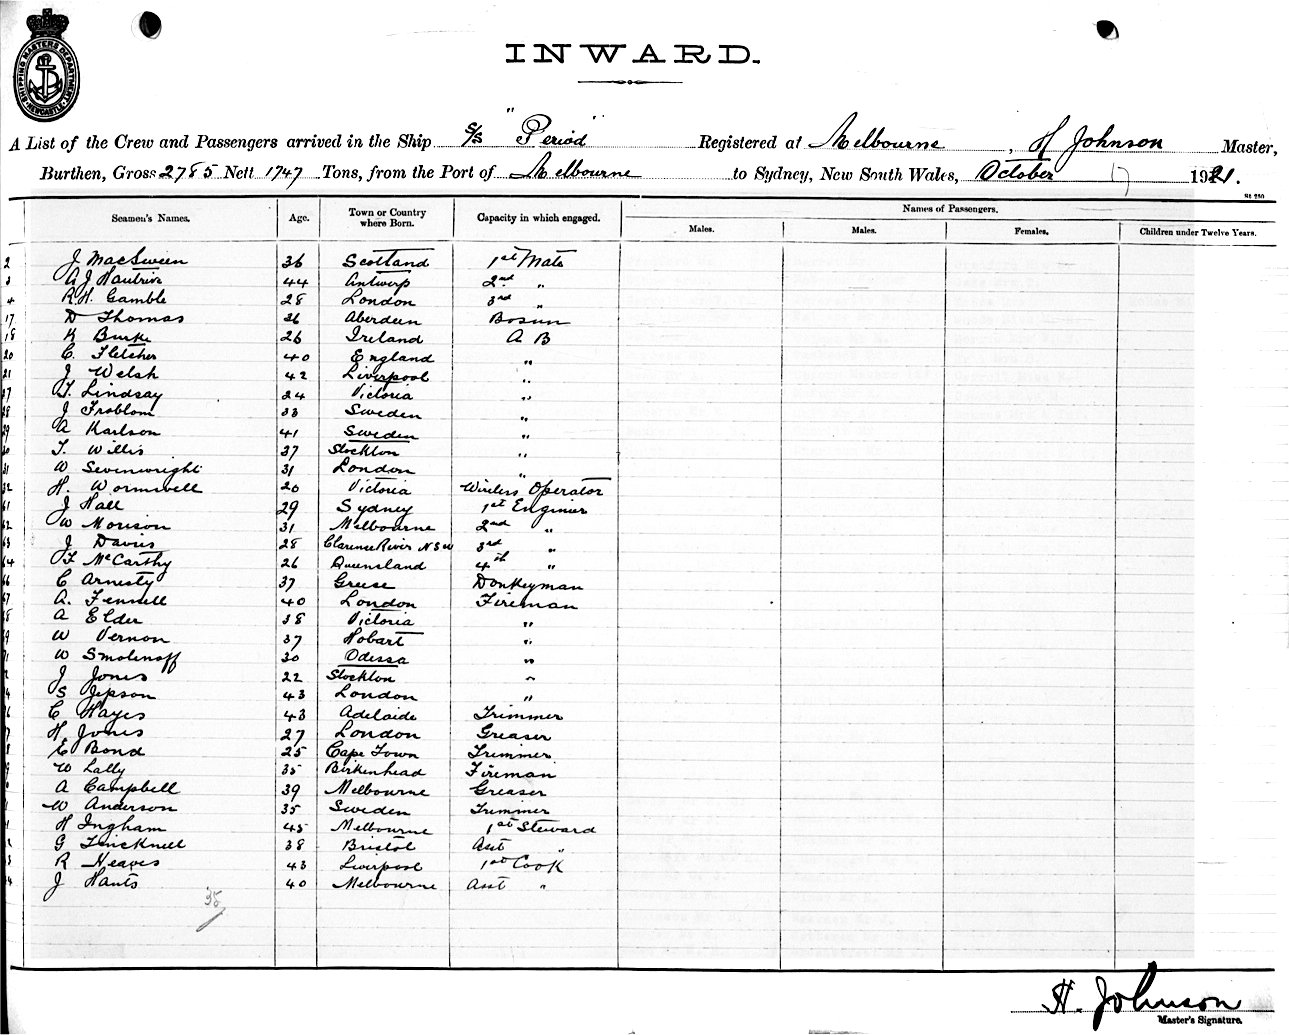 SHIPPING MASTERS DEPARTMENT NEWCASTLE
INWARD.
A List of the Crew and Passengers arrived in the Ship S/S "Period" Registered at Melbourne, H Johnson Master,
Burthen, Gross 2785 Nett 1747 Tons, from the Port of Melbourne to Sydney, New South Wales, October 17 1921.
St 250
Seamen's Names. Age. Town or Country where Born. Capacity in which engaged. Names of Passengers.
Males. Males. Females. Children under Twelve Years.
2 J MacSween 36 Scotland 1st Mate
3 A J Hautrive 44 Antwerp 2nd "
4 R.H. Gamble 28 London 3rd "
17 D Thomas 36 Aberdeen Bosun
18 K Burke 26 Ireland A B
20 C. Fletcher 40 England "
21 J Welsh 42 Liverpool "
27 T. Lindsay 24 Victoria "
28 J Froblom 33 Sweden "
29 A Karlson 41 Sweden "
30 T. Willis 37 Stockton "
31 W Sevenwright 31 London "
32 H. Wormwell 20 Victoria Wireless Operator
61 J Hall 29 Sydney 1st Enginier
62 W Morison 31 Melbourne 2nd "
63 J Davies 28 Clarence River NSW 3rd "
64 F McCarthy 26 Queensland 4th "
66 C Arnesty 37 Greese Donkeyman
67 A. Fennell 40 London Fireman
A Elder 38 Victoria "
W Vernon 37 Hobart "
W Smolenoff 30 Odessa "
J Jones 22 Stockton "
S Jepson 43 London "
C Hayes 43 Adelaide Trimmer
H. Jones 27 London Greaser
E Bond 25 Cape Town Trimmer
W Lally 35 Birkenhead Fireman
A Campbell 39 Melbourne Greaser
W Anderson 35 Sweden Trimmer
H Ingham 45 Melbourne 1st Steward
G Trucknell 38 Bristol Asst "
R Neaves 43 Liverpool 1st Cook
J Hants 40 Melbourne Asst "
35
H. Johnson
Master's Signature.